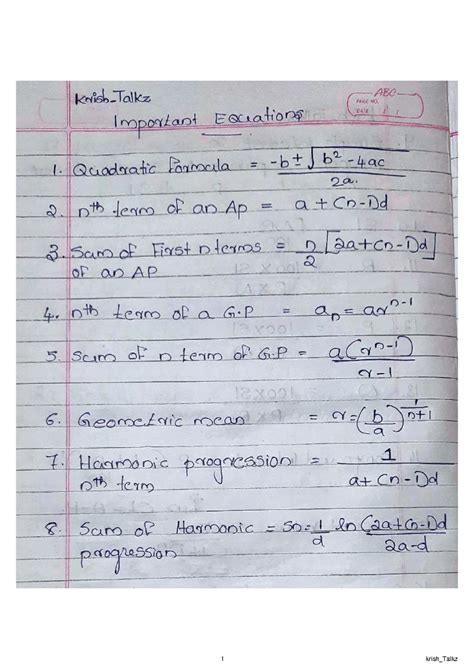 Krish_Talkz
ABC
PAGE NO.
DATE
Important Equations
1. Quadratic Formula = -b ± √b² - 4ac / 2a.
2. nth term of an Ap = a + (n-1)d
3. Sum of First n terms = n/2 [2a + (n-1)d]
of an AP
4. nth term of a G.P = aₙ = arⁿ⁻¹
5. Sum of n term of G.P = a(rⁿ-1) / r-1
6. Geometric mean = r = (b/a)^1/n+1
7. Harmonic progression = 1 / a + (n-1)d
nth term
8. Sum of Harmonic = Sn = 1/d ln (2a + (n-1)d / 2a-d
progression
1
krish_Talkz